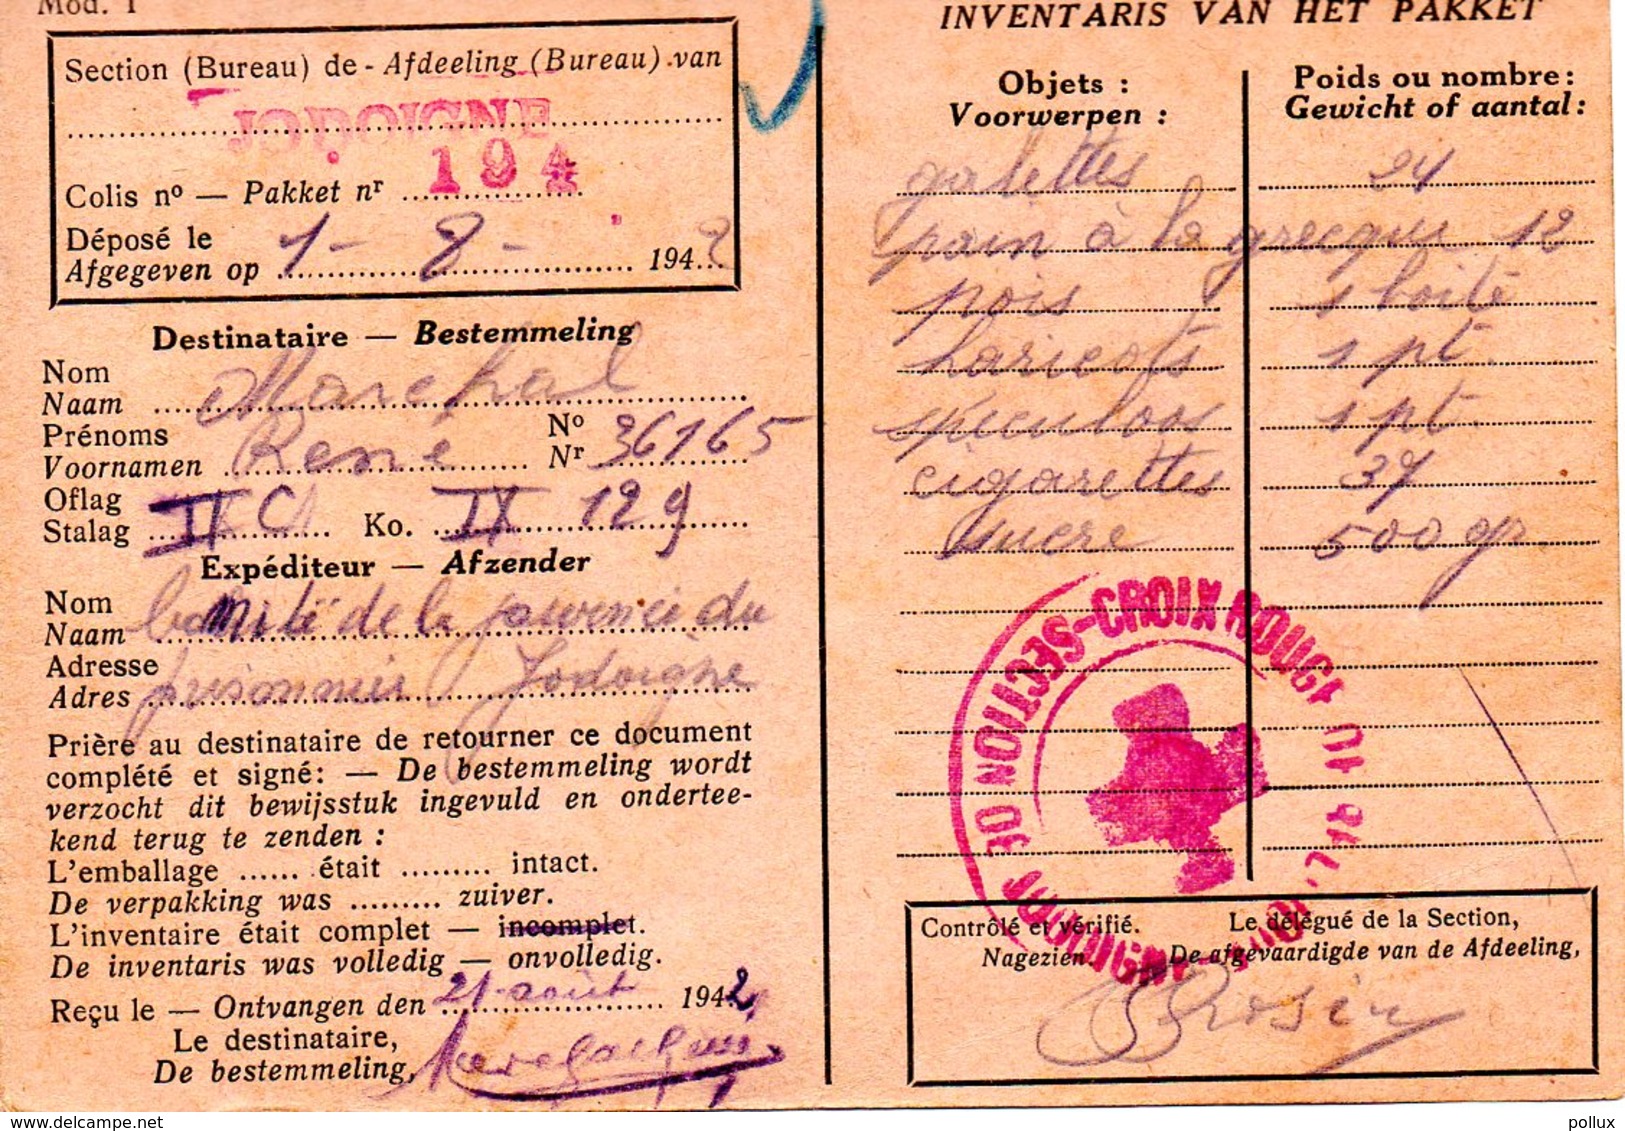 Mod. 1
Section (Bureau) de - Afdeeling (Bureau) van
JODOIGNE
Colis nº — Pakket nr 194
Déposé le
Afgegeven op 1 - 8 - 1942
Destinataire — Bestemmeling
Nom
Naam Marechal
Prénoms
Voornamen René Nº
Nr 36165
Oflag
Stalag Ko. IX 129
Expéditeur — Afzender
Nom
Naam Comité de la journée du
Adresse
Adres prisonnier Jodoigne
Prière au destinataire de retourner ce document
complété et signé: — De bestemmeling wordt
verzocht dit bewijsstuk ingevuld en ondertee-
kend terug te zenden :
L'emballage ...... était ......... intact.
De verpakking was ......... zuiver.
L'inventaire était complet — incomplet.
De inventaris was volledig — onvolledig.
Reçu le — Ontvangen den 21 août 1942
Le destinataire,
De bestemmeling,
INVENTARIS VAN HET PAKKET
Objets : Poids ou nombre :
Voorwerpen : Gewicht of aantal :
galettes 24
pain à la grecque 12
pois 1 boite
haricots 1 pt.
speculoos 1 pt.
cigarettes 37
sucre 500 gr.
SECTION DE JODOIGNE
CROIX ROUGE DE BELGIQUE
Contrôlé et vérifié. Le délégué de la Section,
Nagezien. De afgevaardigde van de Afdeeling,
Rosier
pollux